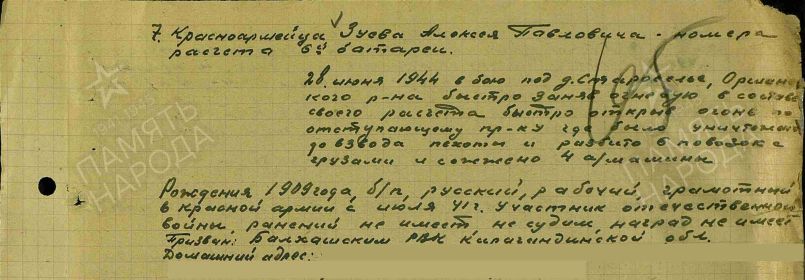 7. Красноармейца Зуева Алексея Павловича - номера
расчета 6й батареи.
28 июня 1944 в бою под д. Староселье, Оршанс
кого р-на быстро заняв огневую в составе
своего расчета быстро открыв огонь по
отступающему пр-ку где было уничтожено
до взвода пехоты и разбито 6 повозок с
грузами и сожжено 4 а/машины
Рождения 1909 года, б/п, русский, рабочий, грамотный
в красной армии с июля 41 г. Участник отечественной
войны, ранений не имеет не судим, наград не имеет
Призван: Балхашским РВК Карагандинской обл.
Домашний адрес:
ПАМЯТЬ
НАРОДА
ПАМЯТЬ
НАРОДА
ПАМЯТЬ
НАРОДА